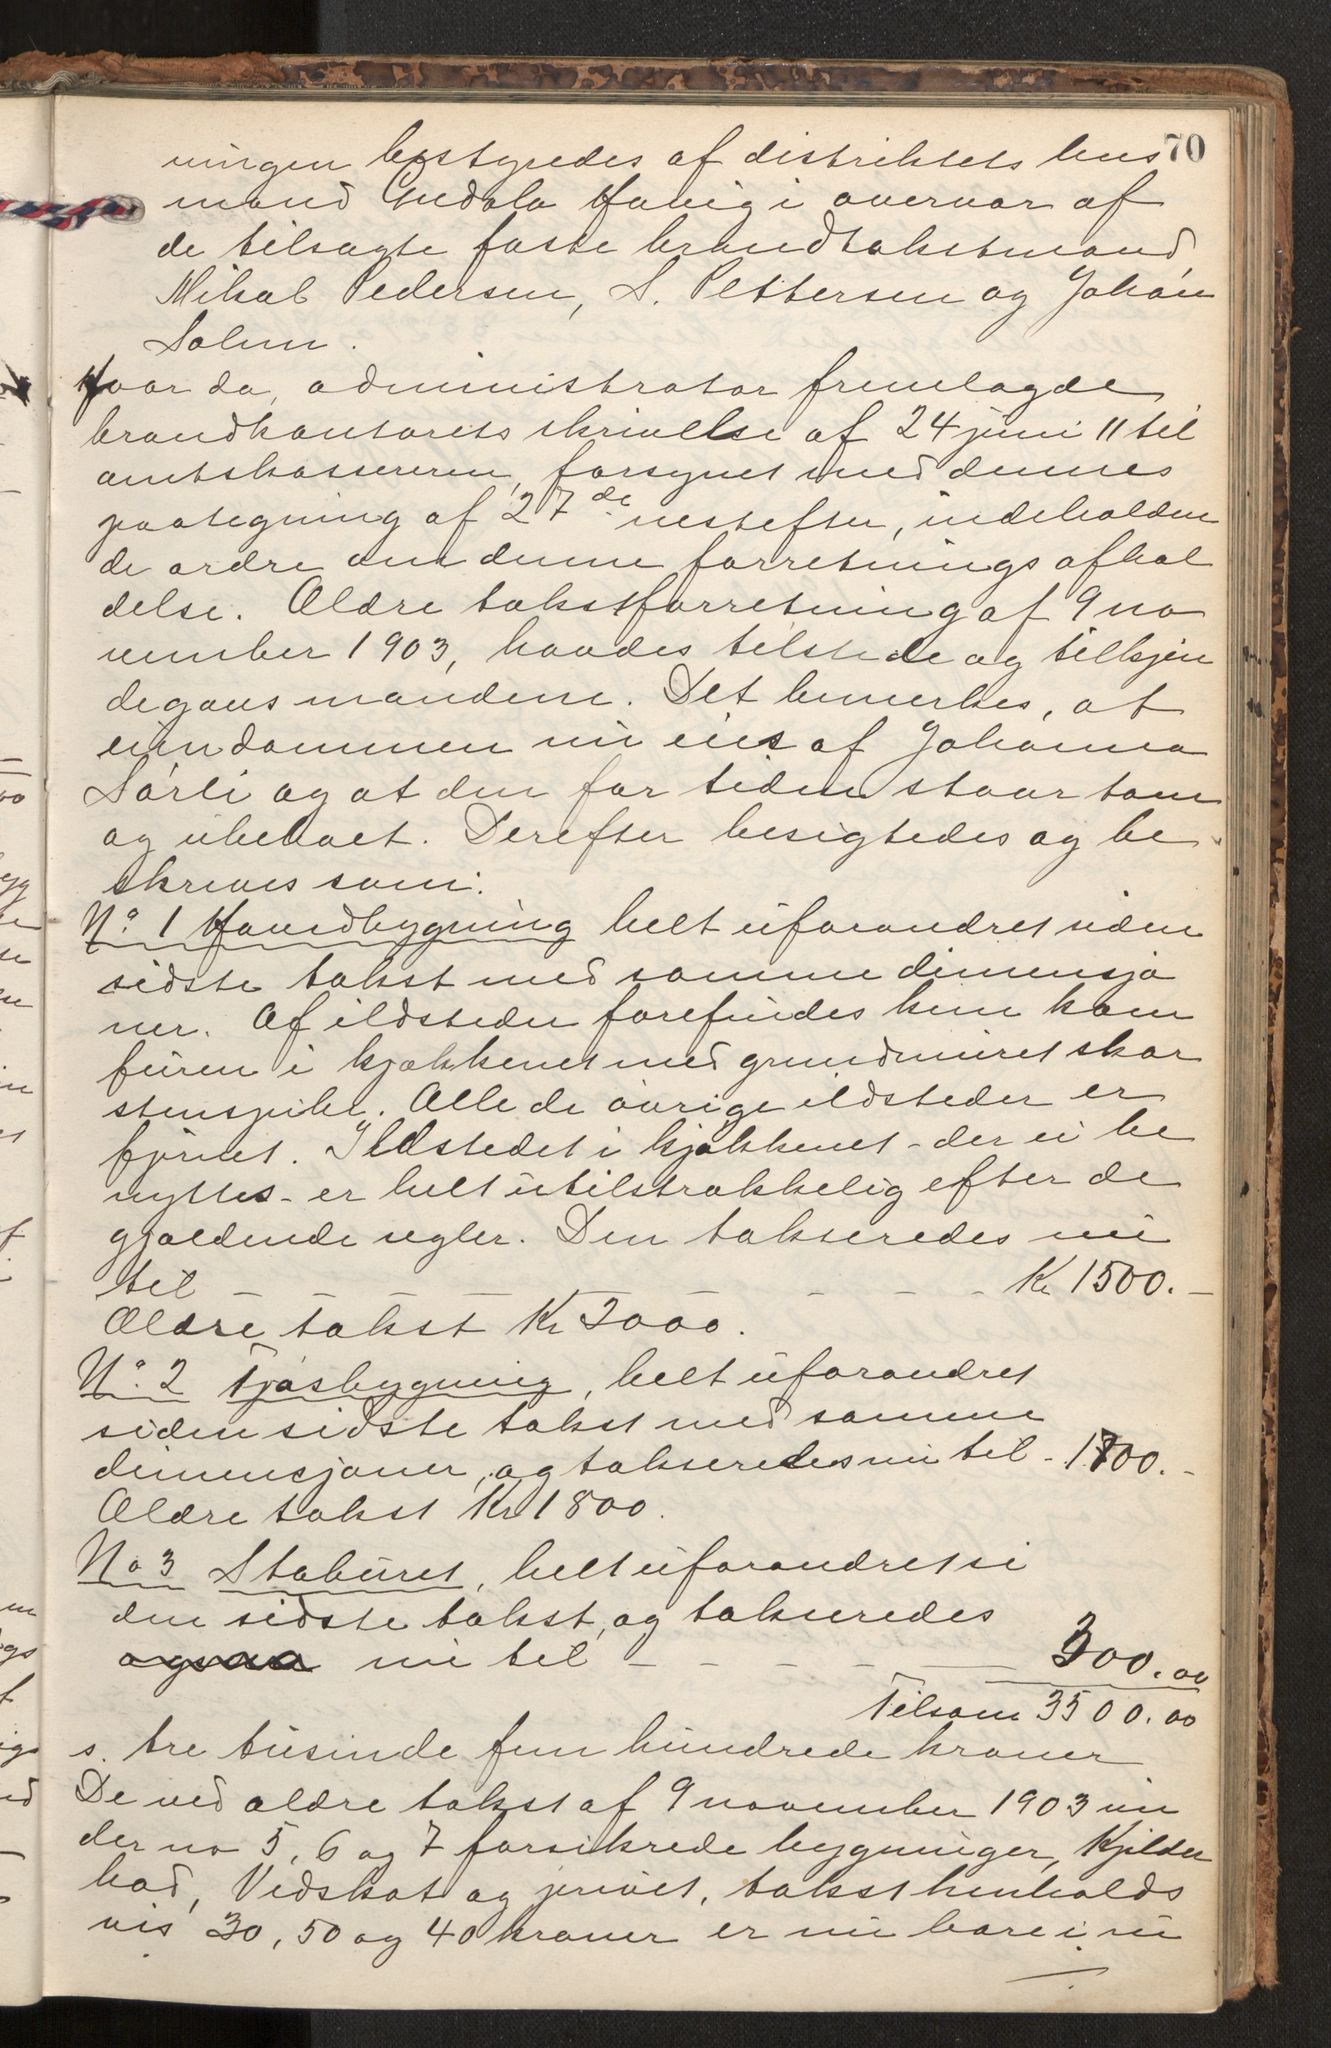 70
ningen bestyredes af distriktets lens
mand i overvær af
de tilsagte faste brandtakstmænd
Mikal Pedersen, S. Pettersen og Johan
Solem.
Hvor da, administrator fremlagde
brandkontorets skrivelse af 24 juni 11 til
amtskassereren, forsynet med dennes
paategning af 27de nestefter, indeholden
de ordre om denne forretnings afhol
delse. Ældre takstforretning af 9 no
vember 1903, havdes tilstede og tilkjen
degaves mændene. Det bemerkes, at
eiendommen nu eies af Johanna
Sørli og at den for tiden staar tom
og ubeboet. Derefter besigtedes og be
skreves som:
No. 1 Hovedbygning helt uforandret siden
sidste takst med samme dimensjo
ner. Af ildsteder forefindes kun kom
furen i kjøkkenet med grundmuret skor
stenspibe. Alle de øvrige ildsteder er
fjernet. Ildstedet i kjøkkenet - der ei be
nyttes - er helt utilstrækkelig efter de
gjældende regler. Den takseredes nu
til - - - - - - - - - Kr 1500.-
Ældre takst Kr 2000.
No. 2 Fjøsbygning, helt uforandret
siden sidste takst med samme
dimensjoner, og takseredes nu til - 1700.-
Ældre takst Kr 1800.
No 3 Staburet, helt uforandret si
den sidste takst, og takseredes
ogsaa nu til - - - - - 300.00
Tilsam 3500.00
s. tre tusinde fem hundrede kroner
De ved ældre takst af 9 november 1903 un
der no 5, 6 og 7 forsikrede bygninger, Kjelder
bod, Vedskot og privet, takst henholds
vis 30, 50 og 40 kroner er nu bare i ru